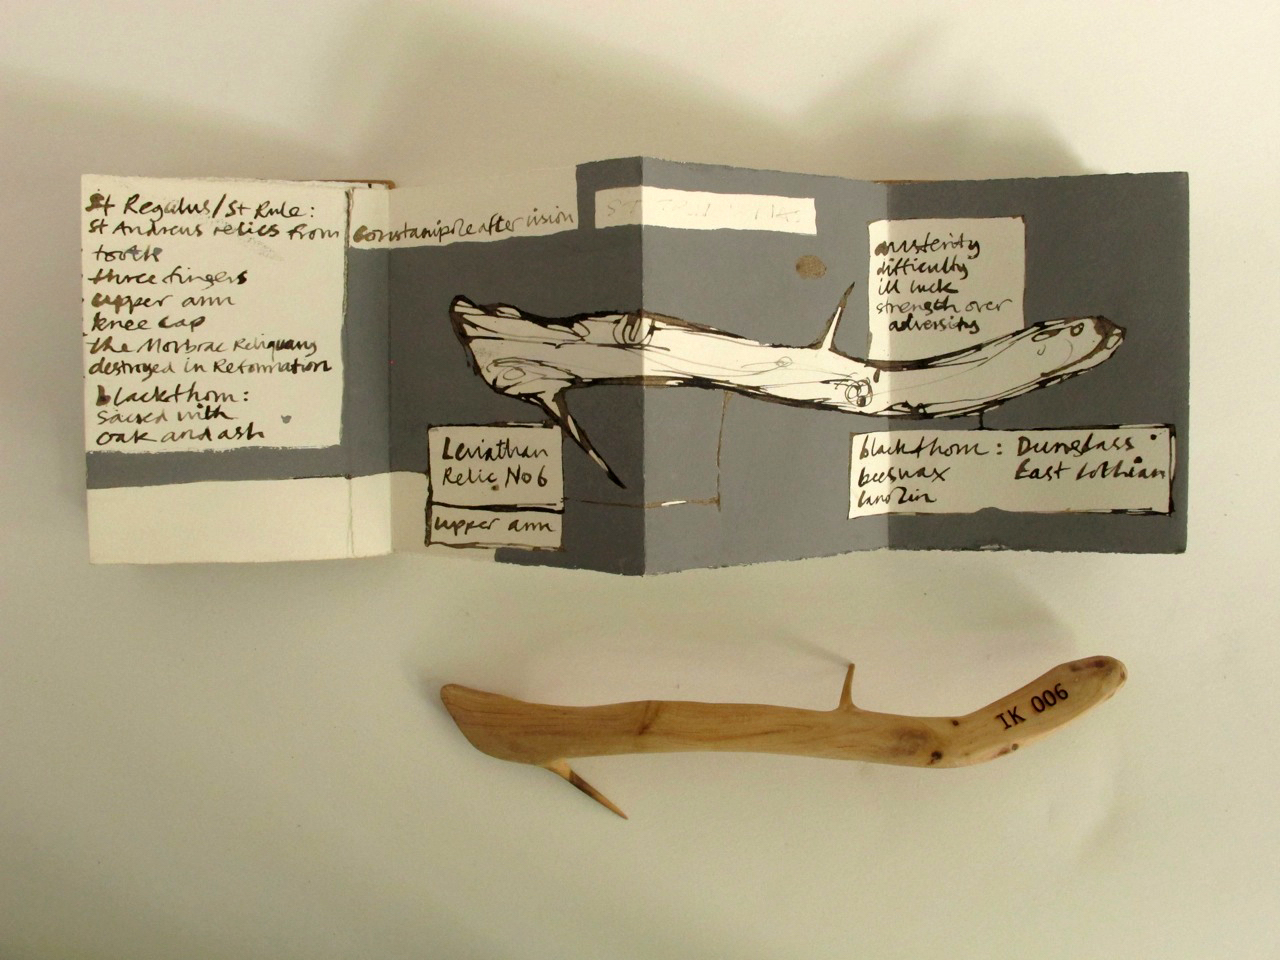 St Regulus/St Rule:
St Andrews relics from
Constaniple after vision
tooth
three fingers
upper arm
knee cap
the Morbrac Reliquary
destroyed in Reformation
blackthorn:
sacred with
oak and ash
austerity
difficulty
ill luck
strength over
adversity
Leviathan
Relic No 6
upper arm
blackthorn: Dunglass
beeswax East Lothian
lanolin
IK 006